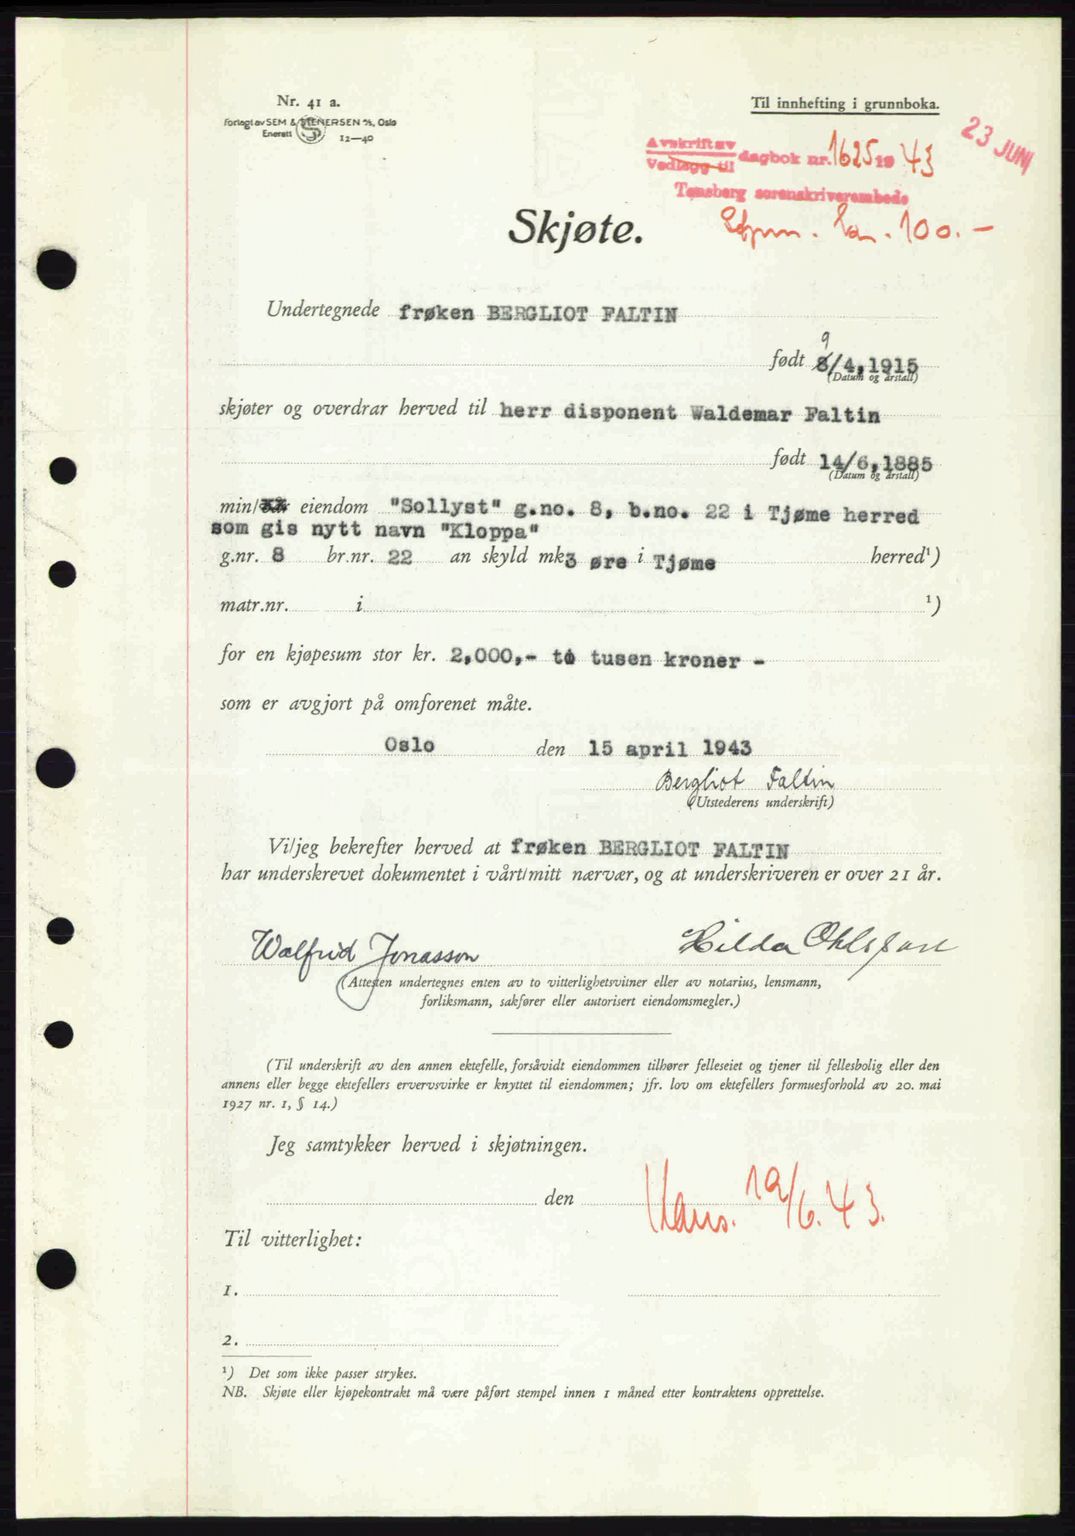 Nr. 41 a.
Forlagt av SEM & STENERSEN A/S, Oslo
Enerett S 12—40
Til innhefting i grunnboka.
23 JUNI
Avskrift av
Vedlegg til dagbok nr. 1625 19 43
Tønsberg sorenskriverembede
kr. 100.-
Skjøte.
Undertegnede frøken BERGLIOT FALTIN
9
født 8/4,1915
(Datum og årstall)
skjøter og overdrar herved til herr disponent Waldemar Faltin
født 14/6,1885
(Datum og årstall)
min/vår eiendom "Sollyst" g.no. 8, b.no. 22 i Tjøme herred
som gis nytt navn "Kloppa"
g.nr. 8 br.nr. 22 an skyld mk 3 øre i Tjøme herred¹)
matr.nr. i ¹)
for en kjøpesum stor kr. 2,000,- to tusen kroner -
som er avgjort på omforenet måte.
Oslo den 15 april 1943
Bergliot Faltin
(Utstederens underskrift)
Vi/jeg bekrefter herved at frøken BERGLIOT FALTIN
har underskrevet dokumentet i vårt/mitt nærvær, og at underskriveren er over 21 år.
Walfrid Jonasson Hilda Ohlsson
(Attesten undertegnes enten av to vitterlighetsvitner eller av notarius, lensmann,
forliksmann, sakfører eller autorisert eiendomsmegler.)
(Til underskrift av den annen ektefelle, forsåvidt eiendommen tilhører felleseiet og tjener til fellesbolig eller den
annens eller begge ektefellers ervervsvirke er knyttet til eiendommen; jfr. lov om ektefellers formuesforhold av 20. mai
1927 nr. 1, § 14.)
Jeg samtykker herved i skjøtningen.
den
19/6.43.
Til vitterlighet:
1.
2.
¹) Det som ikke passer strykes.
NB. Skjøte eller kjøpekontrakt må være påført stempel innen 1 måned etter kontraktens opprettelse.